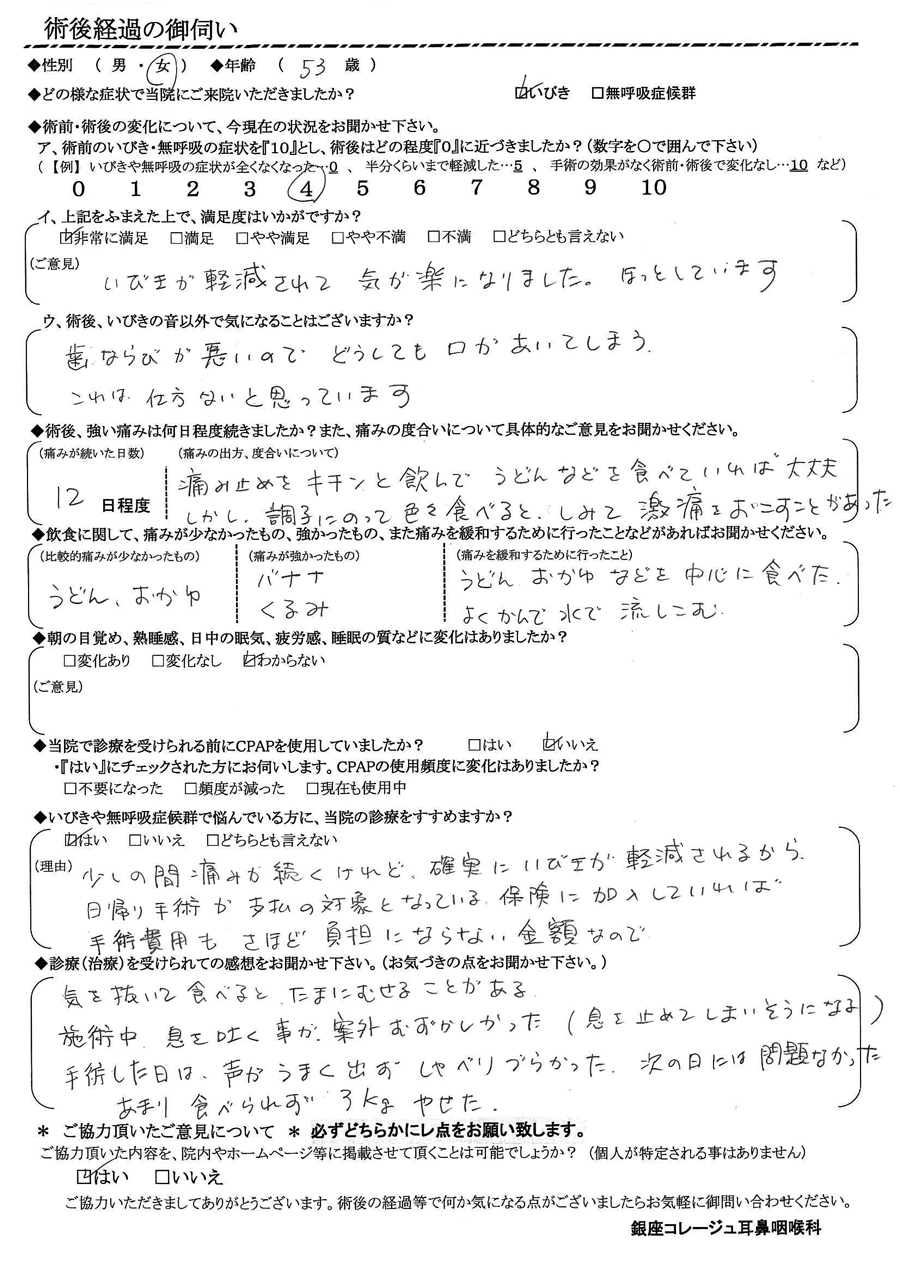 術後経過の御伺い
◆性別 ( 男 ・ 女 ) ◆年齢 ( 53 歳 )
◆どの様な症状で当院にご来院いただきましたか? ☑いびき □無呼吸症候群
◆術前・術後の変化について、今現在の状況をお聞かせ下さい。
ア、術前のいびき・無呼吸の症状を『10』とし、術後はどの程度『0』に近づきましたか?(数字を○で囲んで下さい)
(【例】いびきや無呼吸の症状が全くなくなった…0 、 半分くらいまで軽減した…5 、 手術の効果がなく術前・術後で変化なし…10 など)
0 1 2 3 4 5 6 7 8 9 10
イ、上記をふまえた上で、満足度はいかがですか?
☑非常に満足 □満足 □やや満足 □やや不満 □不満 □どちらとも言えない
(ご意見)
いびきが軽減されて 気が楽になりました。ほっとしています
ウ、術後、いびきの音以外で気になることはございますか?
歯ならびが悪いので どうしても 口があいてしまう.
これは 仕方ないと思っています
◆術後、強い痛みは何日程度続きましたか?また、痛みの度合いについて具体的なご意見をお聞かせください。
(痛みが続いた日数) (痛みの出方、度合いについて)
12 日程度
痛み止めを キチンと飲んで うどんなどを食べていれば 大丈夫
しかし、調子にのって 色を食べると、しみて 激痛をおこすことがあった
◆飲食に関して、痛みが少なかったもの、強かったもの、また痛みを緩和するために行ったことなどがあればお聞かせください。
(比較的痛みが少なかったもの) (痛みが強かったもの) (痛みを緩和するために行ったこと)
うどん、おかゆ
バナナ
くるみ
うどん おかゆ などを 中心に 食べた.
よくかんで 水で 流しこむ.
◆朝の目覚め、熟睡感、日中の眠気、疲労感、睡眠の質などに変化はありましたか?
□変化あり □変化なし ☑わからない
(ご意見)
◆当院で診療を受けられる前にCPAPを使用していましたか? □はい ☑いいえ
・『はい』にチェックされた方にお伺いします。CPAPの使用頻度に変化はありましたか?
□不要になった □頻度が減った □現在も使用中
◆いびきや無呼吸症候群で悩んでいる方に、当院の診療をすすめますか?
☑はい □いいえ □どちらとも言えない
(理由)
少しの間 痛みが続くけれど、確実に いびきが 軽減されるから.
日帰り手術が 支払の対象となっている 保険に 加入していれば
手術費用も さほど 負担にならない 金額なので
◆診療(治療)を受けられての感想をお聞かせ下さい。(お気づきの点をお聞かせ下さい。)
気を抜いて 食べると たまにむせる ことがある.
施術中 息を吐く 事が 案外むずかしかった (息を止めてしまいそうになる)
手術した日は、声が うまく出ず しゃべりづらかった. 次の日には 問題なかった
あまり 食べられず 3kg やせた.
＊ ご協力頂いたご意見について ＊ 必ずどちらかにレ点をお願い致します。
ご協力頂いた内容を、院内やホームページ等に掲載させて頂くことは可能でしょうか? (個人が特定される事はありません)
☑はい □いいえ
ご協力いただきましてありがとうございます。術後の経過等で何か気になる点がございましたらお気軽に御問い合わせください。
銀座コレージュ耳鼻咽喉科